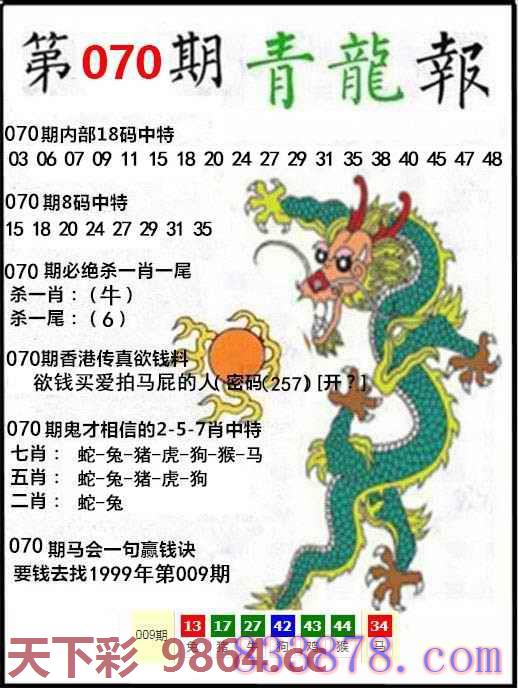 第070期 青龍報
070期内部18码中特
03 06 07 09 11 15 18 20 24 27 29 31 35 38 40 45 47 48
070期8码中特
15 18 20 24 27 29 31 35
070期必绝杀一肖一尾
杀一肖:(牛)
杀一尾:(6)
070期香港传真欲钱料
欲钱买爱拍马屁的人(密码(257)[开?]
070期鬼才相信的2-5-7肖中特
七肖: 蛇-兔-猪-虎-狗-猴-马
五肖: 蛇-兔-猪-虎-狗
二肖: 蛇-兔
070期马会一句赢钱诀
要钱去找1999年第009期
009期 13 17 27 42 43 44 34
兔 猪 牛 狗 鸡 猴 马
天下彩 9864.cc
833878.com